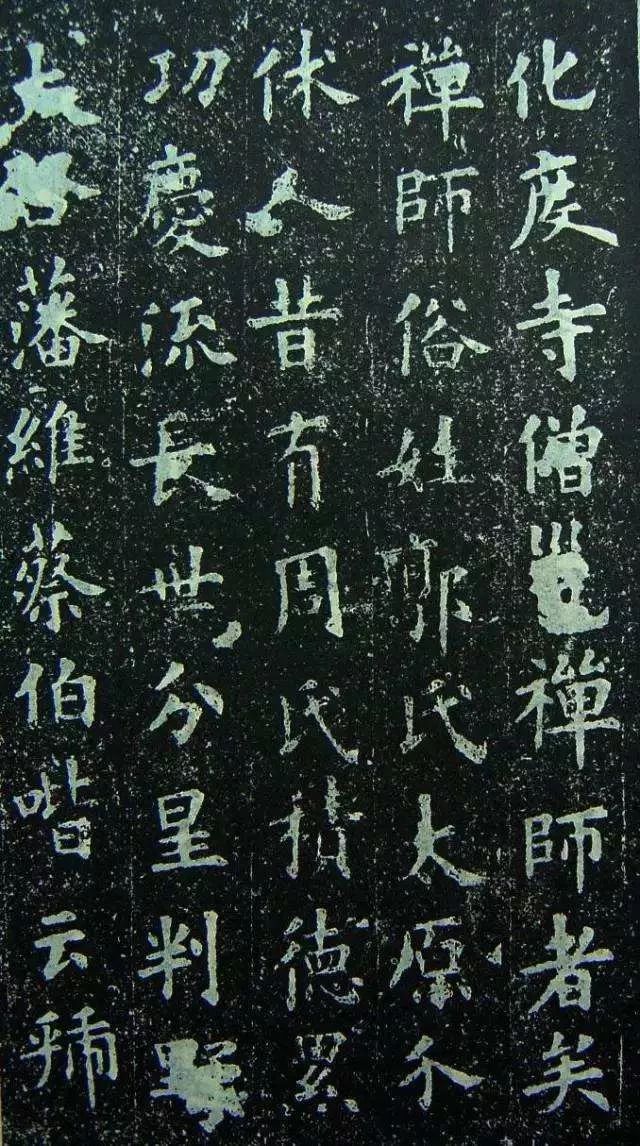 化度寺僧邕禪師者矣
禪師俗姓郭氏太原介
休人昔有周氏積德累
功慶流長世分星判野
大啓藩維蔡伯喈云